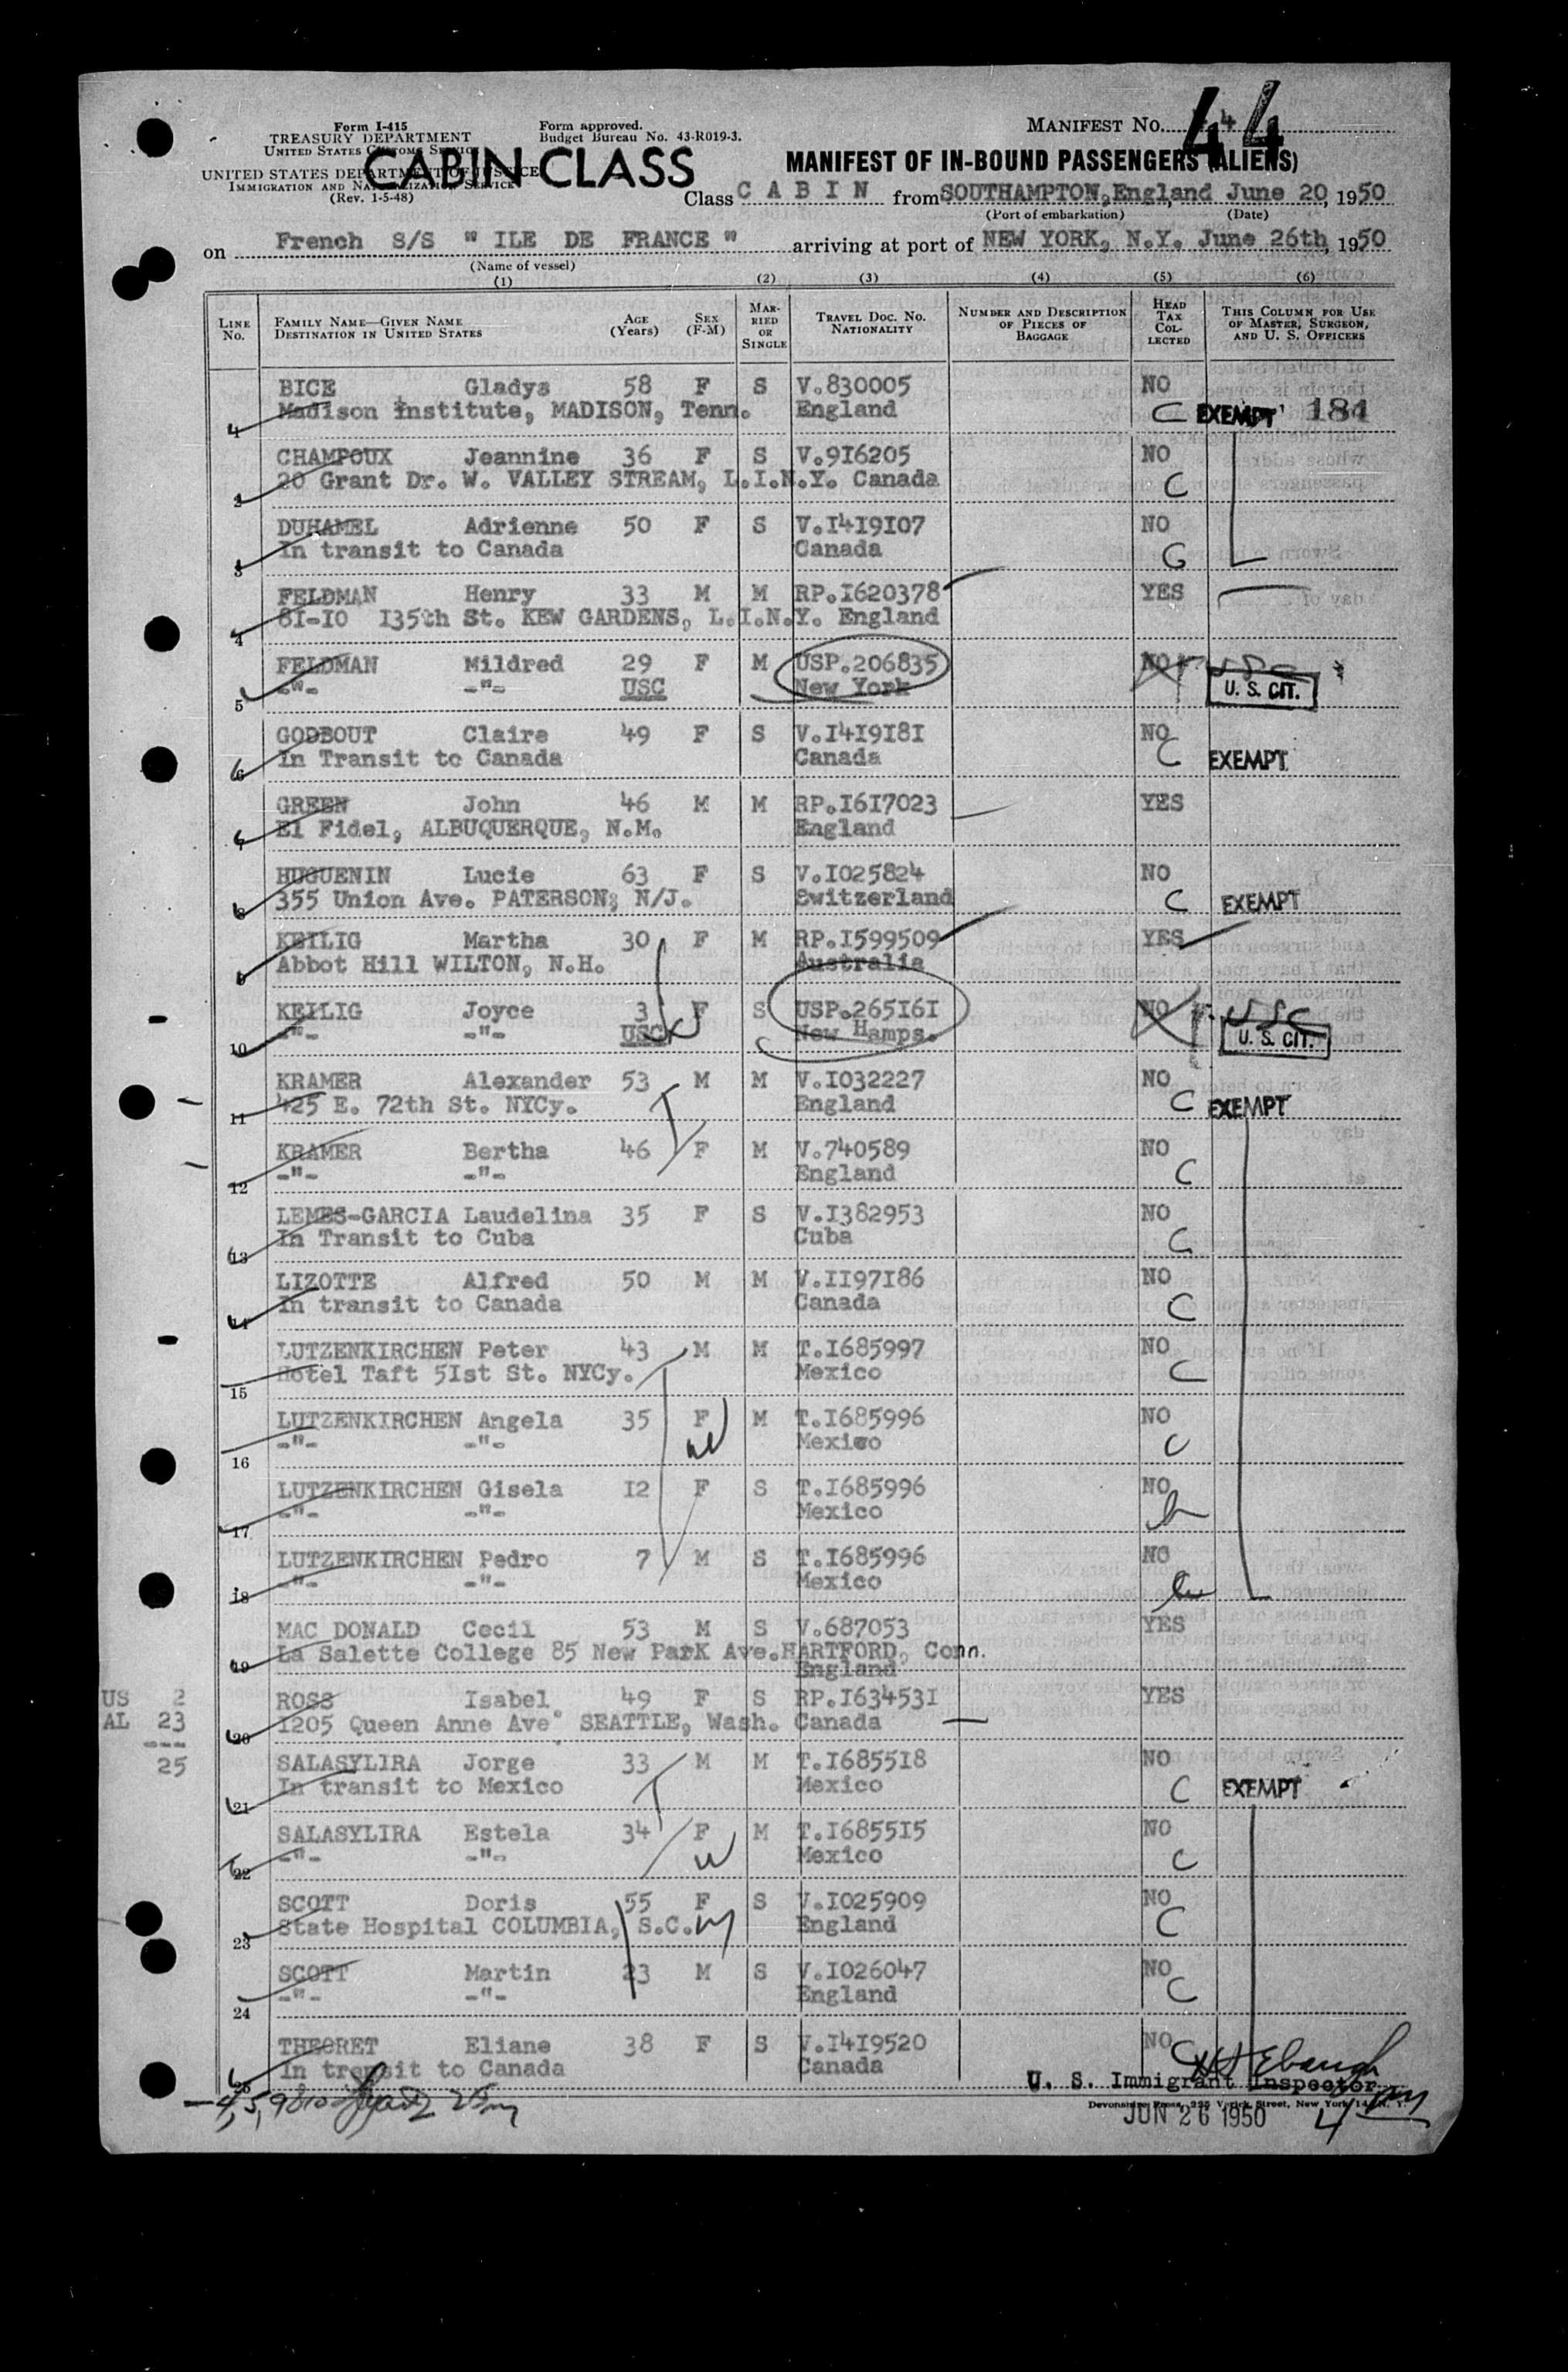 44
Form I-415
TREASURY DEPARTMENT
UNITED STATES CUSTOMS SERVICE
UNITED STATES DEPARTMENT OF JUSTICE
IMMIGRATION AND NATURALIZATION SERVICE
(Rev. 1-5-48)
Form approved.
Budget Bureau No. 43-R019-3.
CABIN CLASS
MANIFEST No. 44
MANIFEST OF IN-BOUND PASSENGERS (ALIENS)
Class C A B I N from SOUTHAMPTON, England June 20, 1950
(Port of embarkation) (Date)
on French S/S " ILE DE FRANCE " arriving at port of NEW YORK, N.Y. June 26th, 1950
(Name of vessel)
(1) (2) (3) (4) (5) (6)
LINE No. FAMILY NAME—GIVEN NAME DESTINATION IN UNITED STATES AGE (Years) SEX (F-M) MARRIED OR SINGLE TRAVEL DOC. NO. NATIONALITY NUMBER AND DESCRIPTION OF PIECES OF BAGGAGE HEAD TAX COLLECTED THIS COLUMN FOR USE OF MASTER, SURGEON, AND U. S. OFFICERS
BICE Gladys 58 F S V.830005 NO
1 Madison Institute, MADISON, Tenn. England C EXEMPT 184
CHAMPOUX Jeannine 36 F S V.916205 NO
2 20 Grant Dr. W. VALLEY STREAM, L.I.N.Y. Canada C
DUHAMEL Adrienne 50 F S V.1419107 NO
3 In transit to Canada Canada C
FELDMAN Henry 33 M M RP.1620378 YES
4 81-10 135th St. KEW GARDENS, L.I.N.Y. England
FELDMAN Mildred 29 F M USP.206835 NO USC
5 -"- -"- USC New York U. S. CIT.
GODBOUT Claire 49 F S V.1419181 NO
6 In Transit to Canada Canada C EXEMPT
GREEN John 46 M M RP.1617023 YES
7 El Fidel, ALBUQUERQUE, N.M. England
HUGUENIN Lucie 63 F S V.1025824 NO
8 355 Union Ave. PATERSON; N/J. Switzerland C EXEMPT
KEILIG Martha 30 F M RP.1599509 YES
9 Abbot Hill WILTON, N.H. Australia
KEILIG Joyce 3 F S USP.265161 NO USC
10 -"- -"- USC New Hamps. U. S. CIT.
KRAMER Alexander 53 M M V.1032227 NO
11 425 E. 72th St. NYCy. England C EXEMPT
KRAMER Bertha 46 F M V.740589 NO
12 -"- -"- England C
LEMES-GARCIA Laudelina 35 F S V.1382953 NO
13 In Transit to Cuba Cuba C
LIZOTTE Alfred 50 M M V.1197186 NO
14 In transit to Canada Canada C
LUTZENKIRCHEN Peter 43 M M T.1685997 NO
15 Hotel Taft 51st St. NYCy. Mexico C
LUTZENKIRCHEN Angela 35 F M T.1685996 NO
16 -"- -"- W Mexico C
LUTZENKIRCHEN Gisela 12 F S T.1685996 NO
17 -"- -"- Mexico
LUTZENKIRCHEN Pedro 7 M S T.1685996 NO
18 -"- -"- Mexico
MAC DONALD Cecil 53 M S V.687053 YES
19 La Salette College 85 New Park Ave. HARTFORD, Conn.
England
US 2 ROSS Isabel 49 F S RP.1634531 YES
AL 23 20 1205 Queen Anne Ave SEATTLE, Wash. Canada
---
25 SALASYLIRA Jorge 33 M M T.1685518 NO
21 In transit to Mexico Mexico C EXEMPT
SALASYLIRA Estela 34 F M T.1685515 NO
22 -"- -"- W Mexico C
SCOTT Doris 55 F S V.1025909 NO
23 State Hospital COLUMBIA, S.C. England C
SCOTT Martin 23 M S V.1026047 NO
24 -"- -"- England C
THEORET Eliane 38 F S V.1419520 NO
25 In transit to Canada Canada C
U. S. Immigrant Inspector
Devonshire Press, 225 Varick Street, New York 14, N. Y.
JUN 26 1950